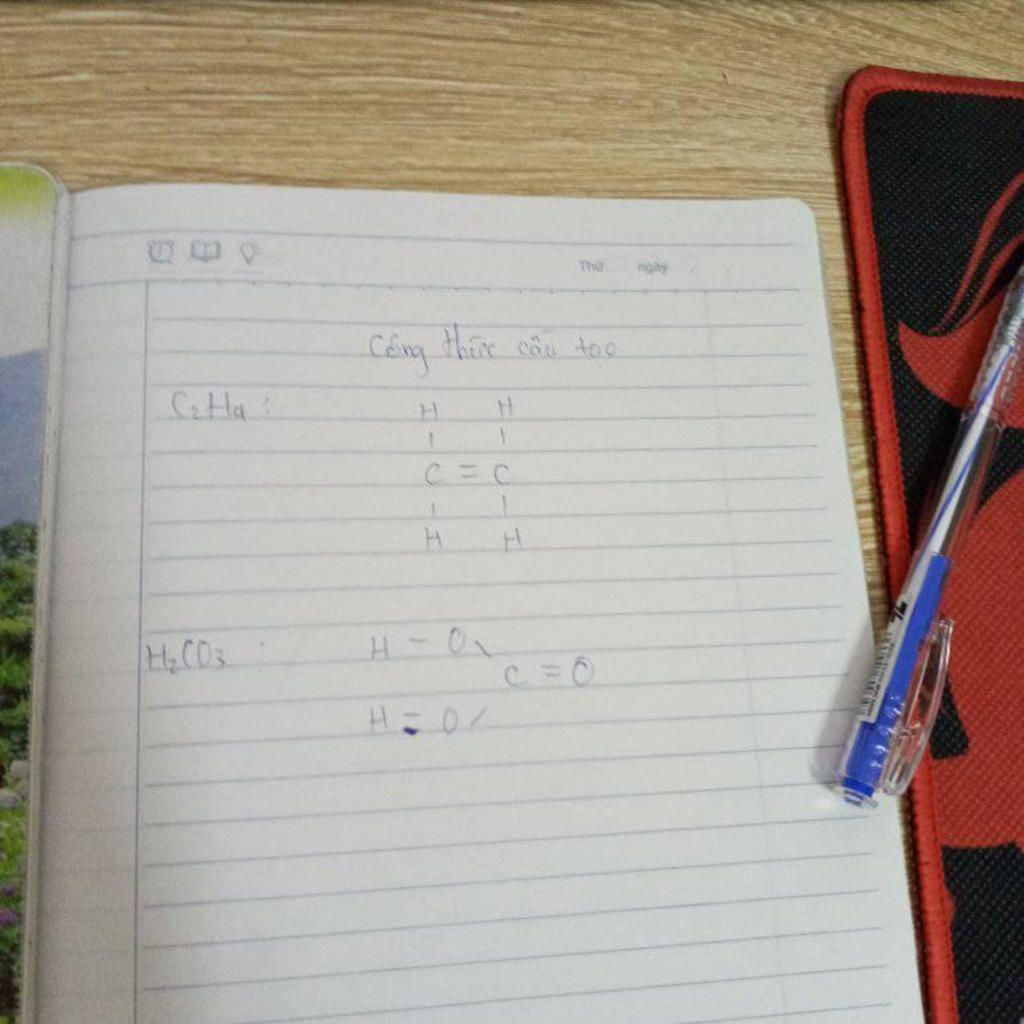 Thứ ngày
Công thức cấu tạo
C2H4 :
H H
| |
C = C
| |
H H
H2CO3 :
H - O \
C = O
H = O /